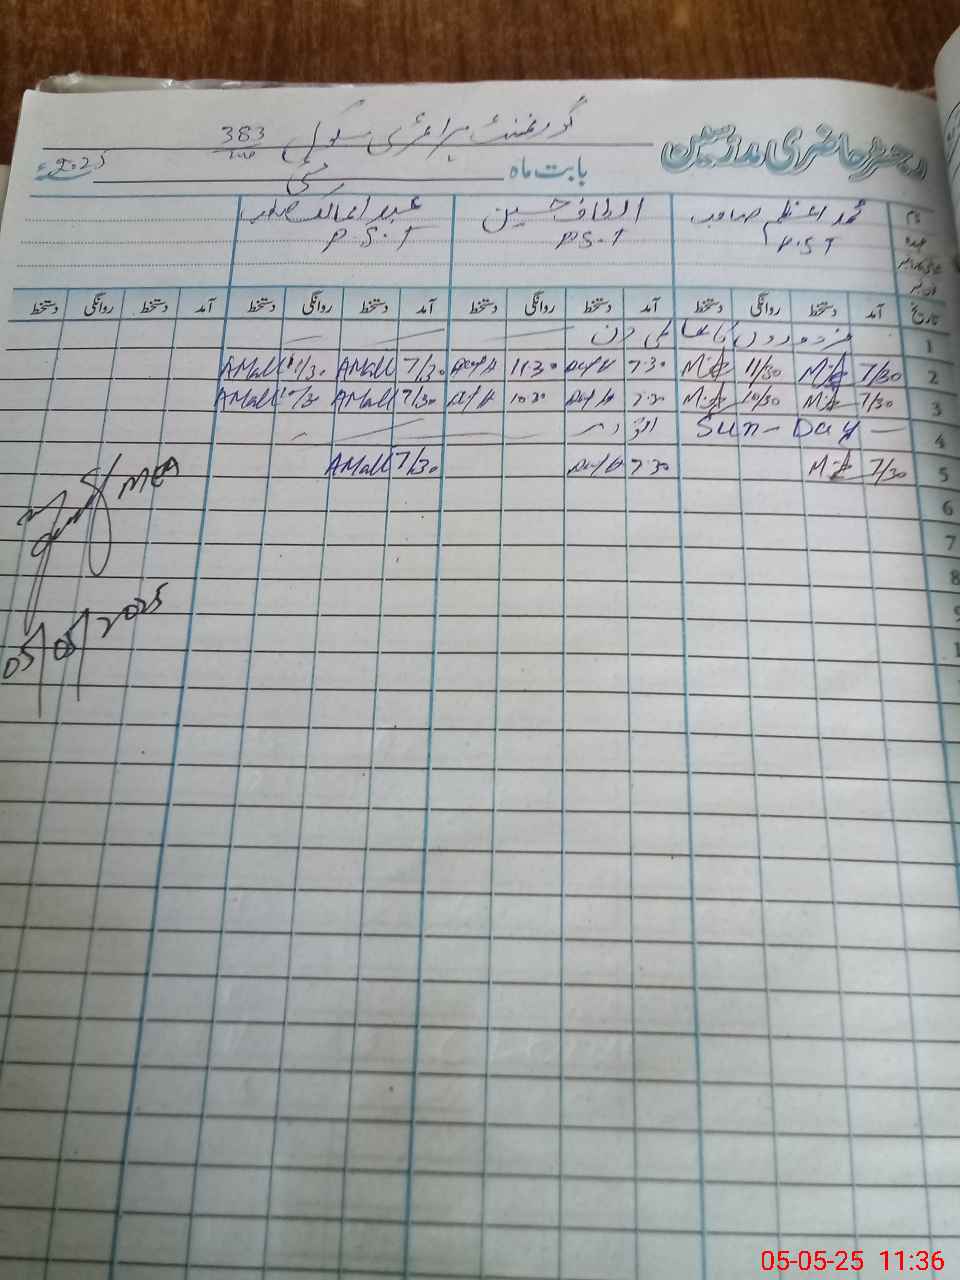 رجسٹر حاضری مدرسین
گورنمنٹ پرائمری سکول 383
بابت ماہ مئی 2025ء
نام محمد اعظم صاحب الطاف حسین عبدالمالک
عہدہ P.S.T P.S.T P.S.T
تاریخ آمد دستخط روانگی دستخط آمد دستخط روانگی دستخط آمد دستخط روانگی دستخط آمد دستخط روانگی دستخط
1 مزدوروں کا عالمی دن
2 7/30 11/30 7:30 11:30 7/30 AMall 11/30 AMall
3 7/30 10/30 7:30 10:30 7/30 AMall AMall
4 Sun-Day اتوار
5 7/30 7:30 7/30 AMall
6
7
8
MEA
05/05/2025
05-05-25 11:36